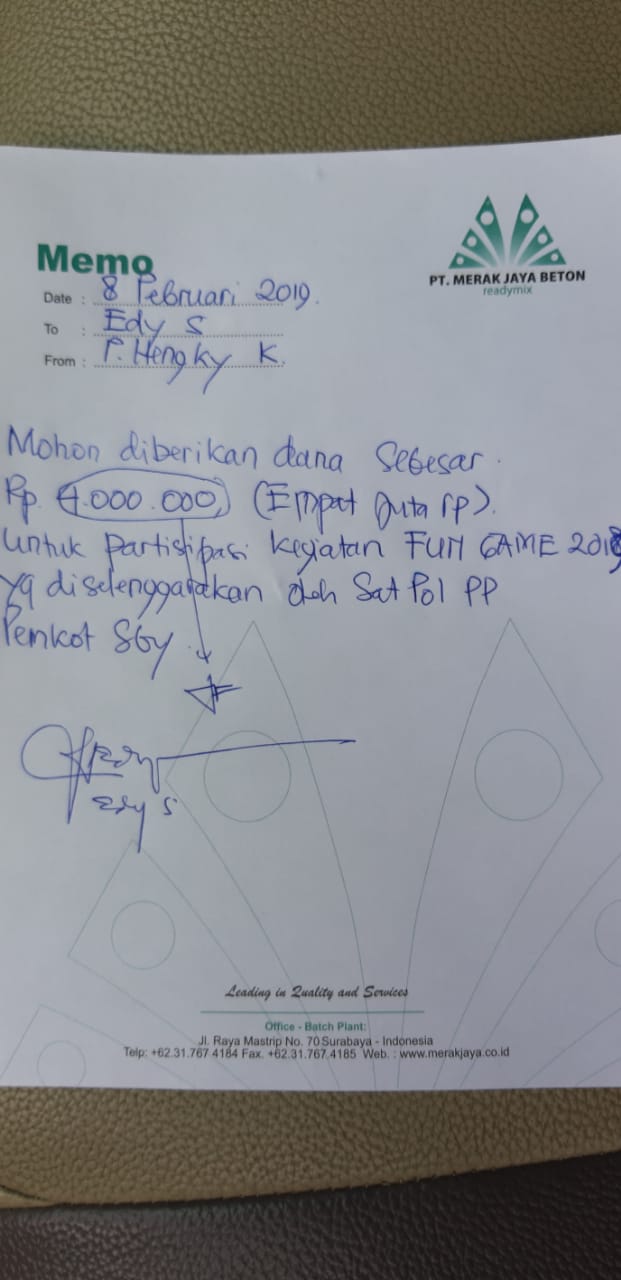 PT. MERAK JAYA BETON
readymix
Memo
Date : 8 Pebruari 2019.
To : Edy S
From : P. Hengky K.
Mohon diberikan dana sebesar.
Rp. 4.000.000, (Empat juta rp).
untuk partisipasi kegiatan FUN GAME 2018
yg diselenggarakan oleh Sat Pol PP
Pemkot Sby.
Edy S
Leading in Quality and Services
Office - Batch Plant:
Jl. Raya Mastrip No. 70 Surabaya - Indonesia
Telp: +62.31.767 4184 Fax. +62.31.767.4185 Web. : www.merakjaya.co.id